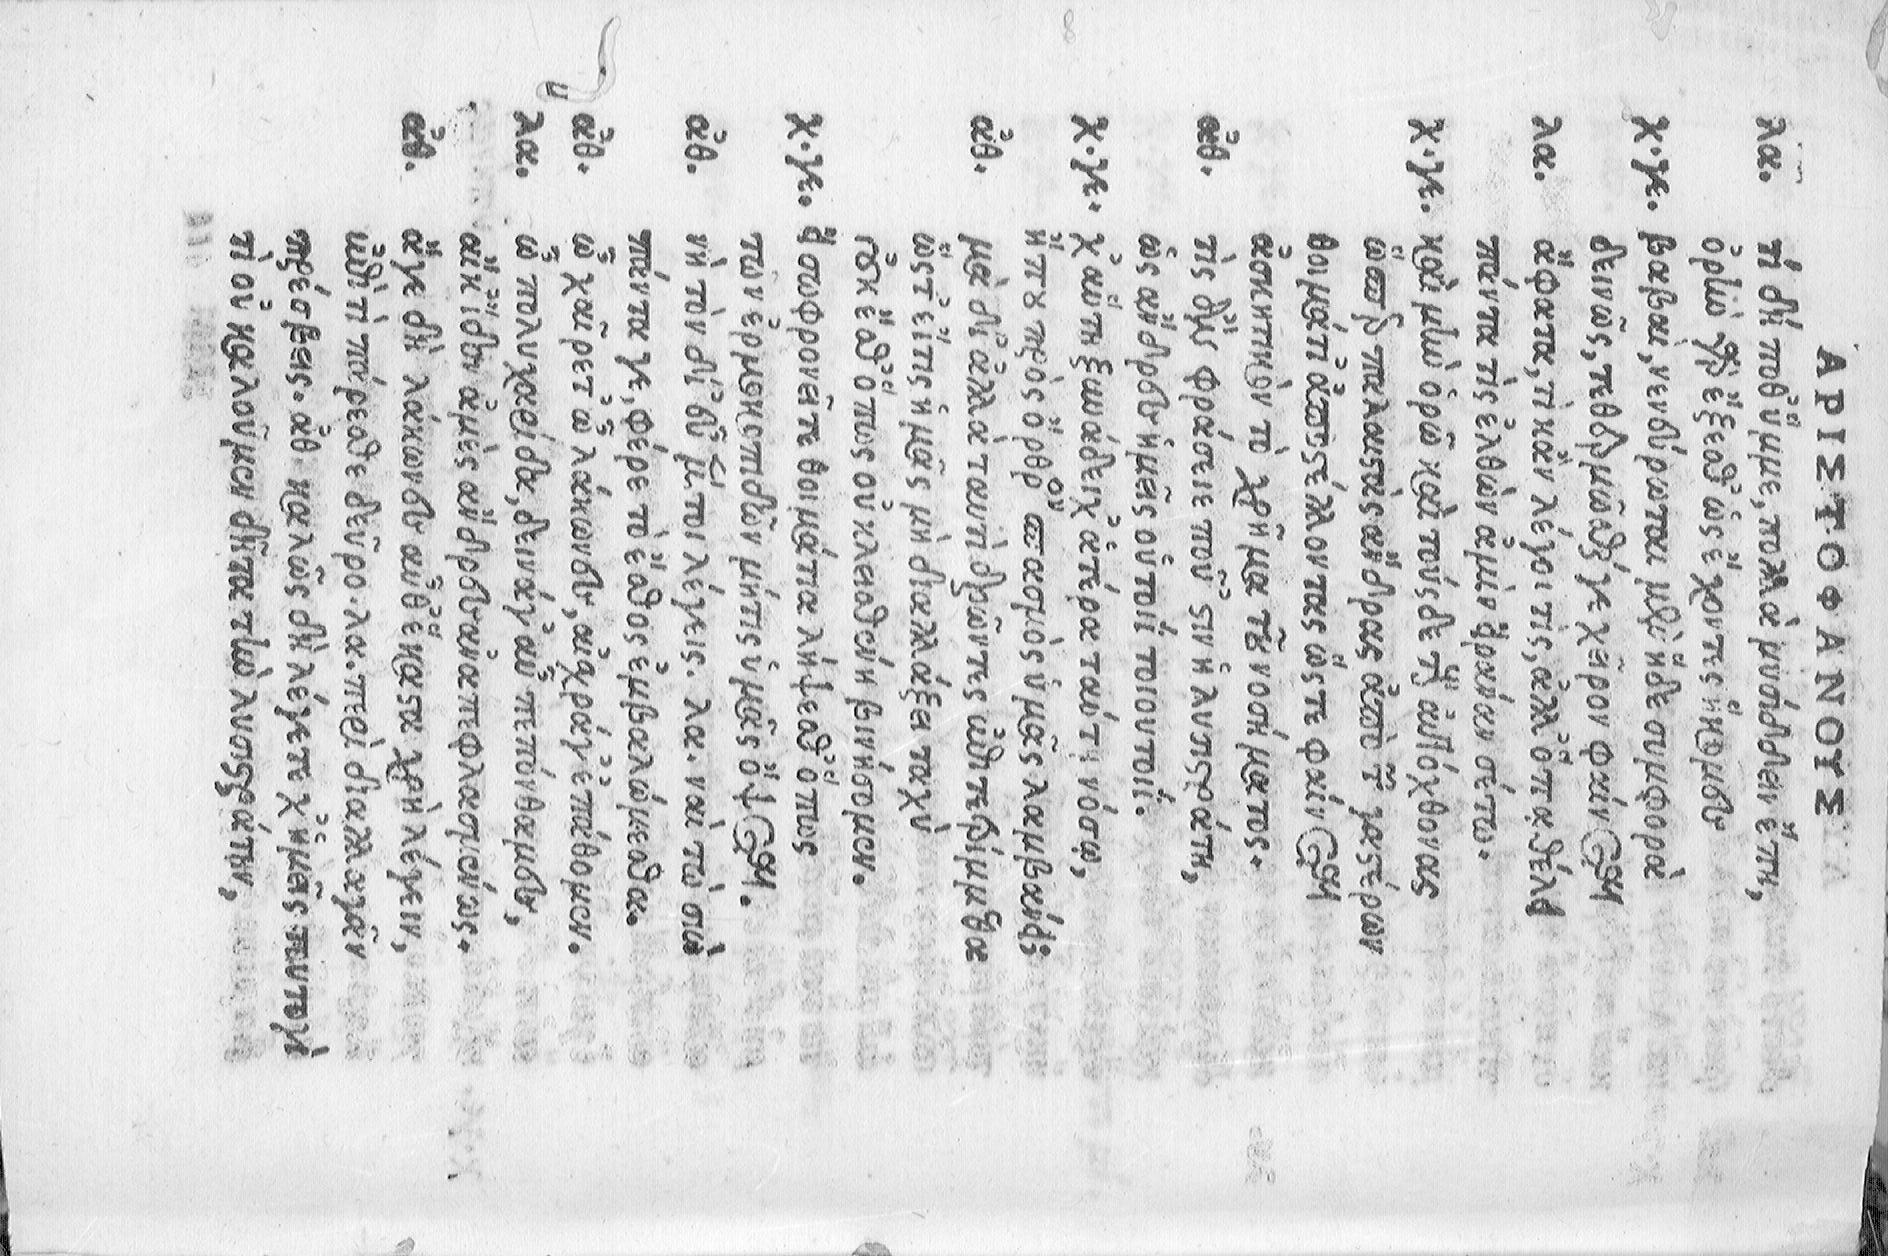 ΑΡΙΣΤΟΦΑΝΟΥΣ
λα. τί δεῖ ποθ' ὕμμε, πολλὰ μυσίδδειν ἔπη,
ὁρῆν γὰρ ἔξεσθ' ὡς ἔχοντες ἥκομεν
χ.γε. βαβαὶ, νενεύρωται μὲν ἥδε συμφορὰ
δεινῶς, τεθερμῶσθαί γε χεῖρον φαίνεται
λα. ἄφατα, τί κἂν λέγοι τις, ἀλλ' ὅπα θέλει
πάντα τὶς ἐλθὼν ἁμὶν εἰράναν σέτω.
χ.γε. καὶ μὴν ὁρῶ καὶ τούσδε τοὺς αὐτόχθονας
ὥσπερ παλαιστὰς ἄνδρας ἀπὸ τῶν γαστέρων
θοιμάτι' ἀποστέλλοντας ὥστε φαίνεται
ἀσκητικὸν τὸ χρῆμα τοῦ νοσήματος.
ἀθ. τὶς ἂν φράσειε ποῦ 'στιν ἡ λυσιστράτη,
ὡς ἄνδρες ἡμεῖς οὑτοιῒ τοιουτοιΐ.
χ.γε. χ' αὕτη ξυνάδει χ' ἀτέρα ταύτῃ νόσῳ,
ἤ που πρὸς ὄρθρον σπασμὸς ὑμᾶς λαμβάνει;
ἀθ. μὰ δί' ἀλλὰ ταυτὶ δρῶντες ἐπιτετρίμμεθα
ὥστ' εἴ τις ἡμᾶς μὴ διαλλάξει ταχὺ
οὐκ ἔσθ' ὅπως οὐ κλεισθένη βινήσομεν.
χ.γε. εἰ σωφρονεῖτε θοιμάτια λήψεσθ' ὅπως
τῶν ἑρμοκοπιδῶν μήτις ὑμᾶς ὄψεται.
ἀθ. νὴ τὸν δί' εὖ μέντοι λέγεις. λα. ναὶ τὼ σιὼ
πάντα γε, φέρε τὸ ἔσθος ἐμβαλώμεθα.
ἀθ. ὦ χαίρετ' ὦ λάκωνες, αἰσχρά γ' ἐπάθομεν.
λα. ὦ πολυχαρίδα, δεινά γ' αὖ πεπόνθαμες,
αἴκ' ἴδον ἁμὲς ἄνδρες ἀναπεφλασμένως.
ἀθ. ἄγε δὴ λάκωνες αὖθ' ἕκαστα χρὴ λέγειν,
ἐπὶ τὶ πάρεσθε δεῦρο. λα. περὶ διαλλαγᾶν
πρέσβεις. ἀθ. καλῶς δὴ λέγετε χ' ἡμεῖς τουτογὶ
τὶ οὐ καλοῦμεν δῆτα τὴν λυσιστράτην,